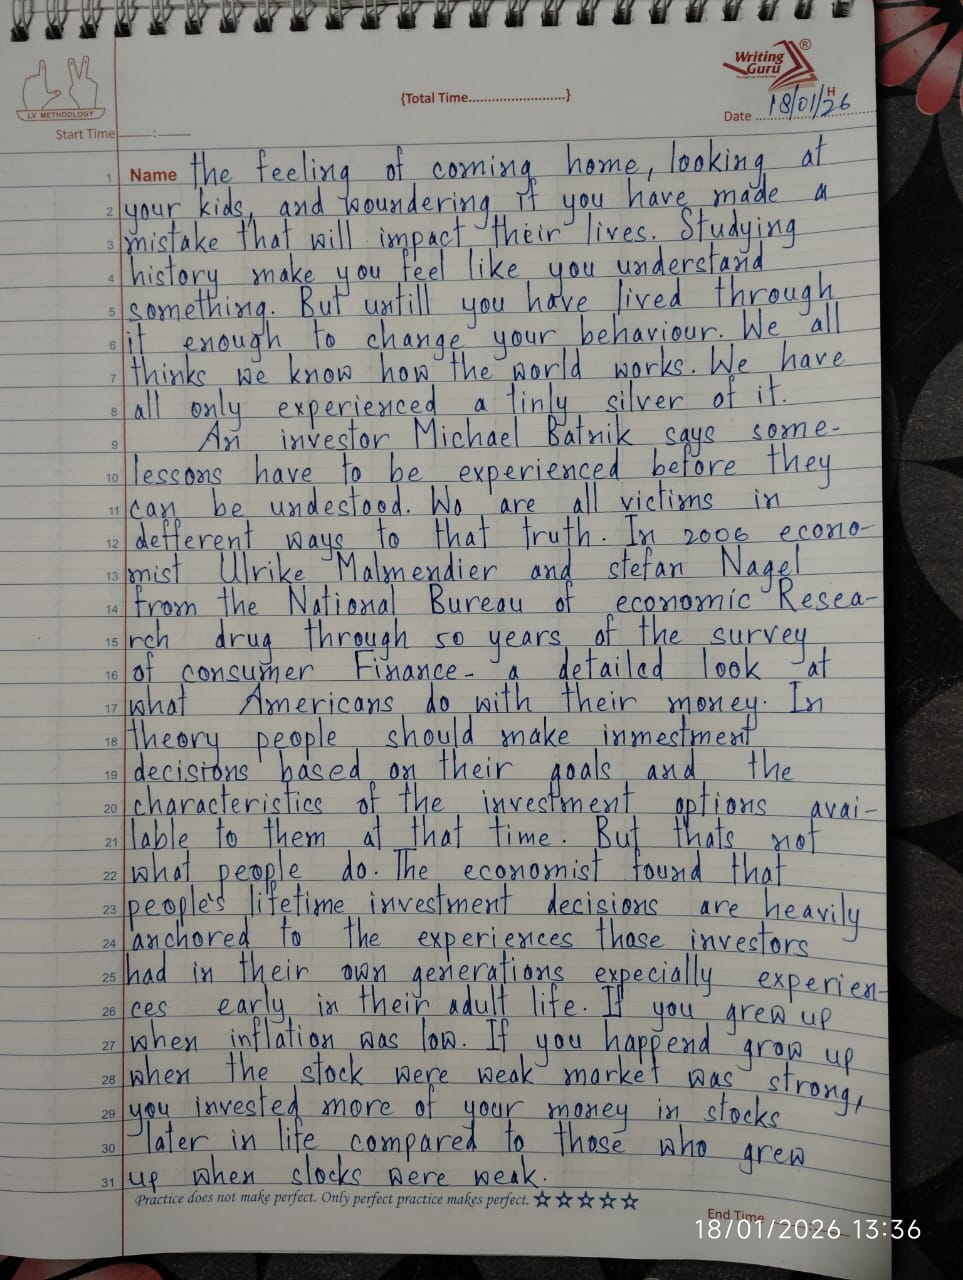 LV METHODLOGY
Writing Guru ®
{Total Time............................}
H
Date 18/01/26
Start Time ____:____
1 Name the feeling of coming home, looking at
2 your kids, and woundering if you have made a
3 mistake that will impact their lives. Studying
4 history make you feel like you understand
5 something. But untill you have lived through
6 it enough to change your behaviour. We all
7 thinks we know how the world works. We have
8 all only experienced a tinly silver of it.
9 An investor Michael Batnik says some-
10 lessons have to be experienced before they
11 can be undestood. We are all victims in
12 defferent ways to that truth. In 2006 econo-
13 mist Ulrike Malmendier and stefan Nagel
14 from the National Bureau of economic Resea-
15 rch drug through 50 years of the survey
16 of consumer Finance- a detailed look at
17 what Americans do with their money. In
18 theory people should make inmestment
19 decisions based on their goals and the
20 characteristics of the investment options avai-
21 lable to them at that time. But thats not
22 what people do. The economist found that
23 people's lifetime investment decisions are heavily
24 anchored to the experiences those investors
25 had in their own generations expecially experien-
26 ces early in their adult life. If you grew up
27 when inflation was low. If you happend grow up
28 when the stock were weak market was strong,
29 you invested more of your money in stocks
30 later in life compared to those who grew
31 up when stocks were weak.
Practice does not make perfect. Only perfect practice makes perfect. ☆☆☆☆☆
End Time
18/01/2026 13:36